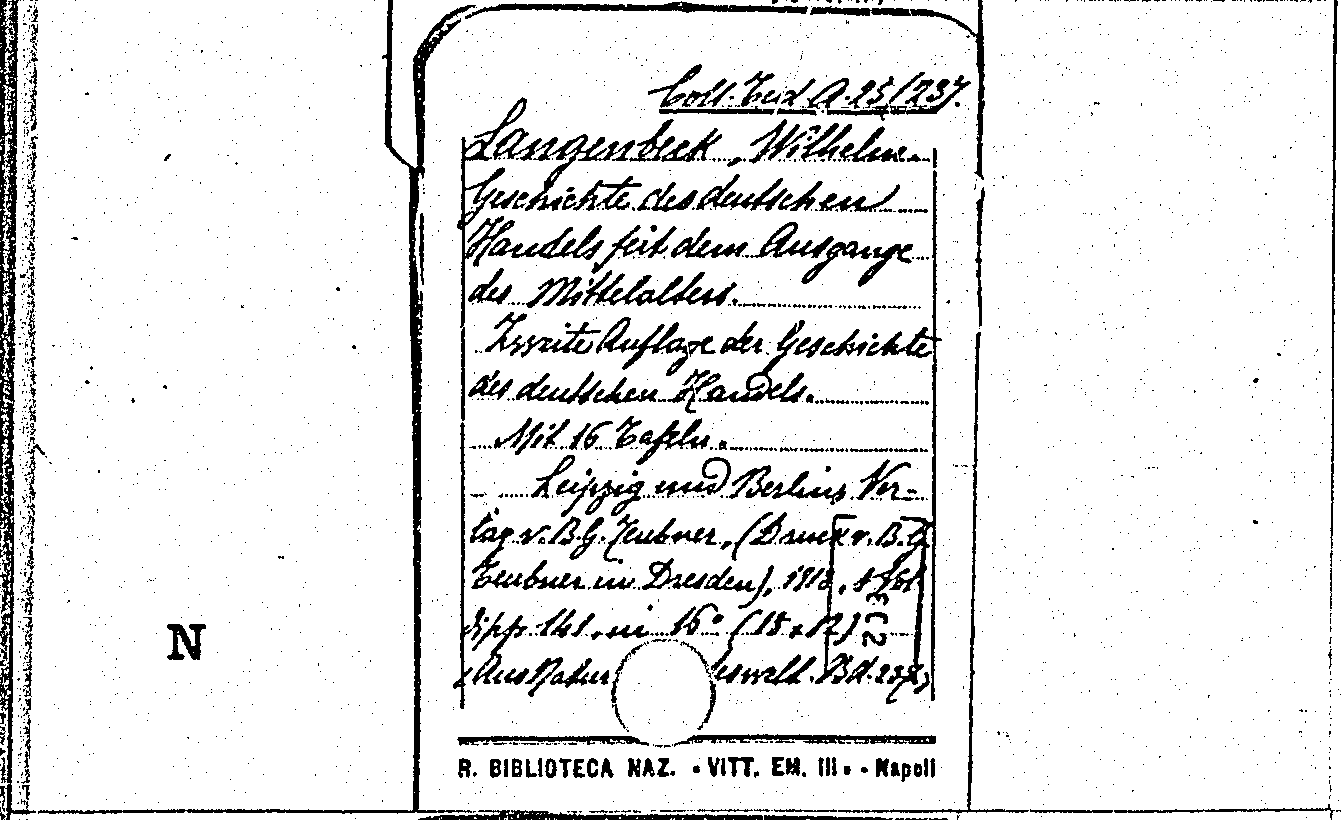 Coll. Ted. A. 25 (237.
Langenbeck, Wilhelm.
Geschichte des deutschen
Handels seit dem Ausgange
des Mittelalters.
Zweite Auflage der Geschichte
des deutschen Handels.
Mit 16 Tafeln.
Leipzig und Berlin, Ver-
lag v. B. G. Teubner, (Druck v. B. G.
Teubner in Dresden), 1918, 1 vol
di pp. 141, in 16° (18 x 12)
(Aus Natur eswelt. Bd. 237)
N
R. BIBLIOTECA NAZ. • VITT. EM. III • - Napoli